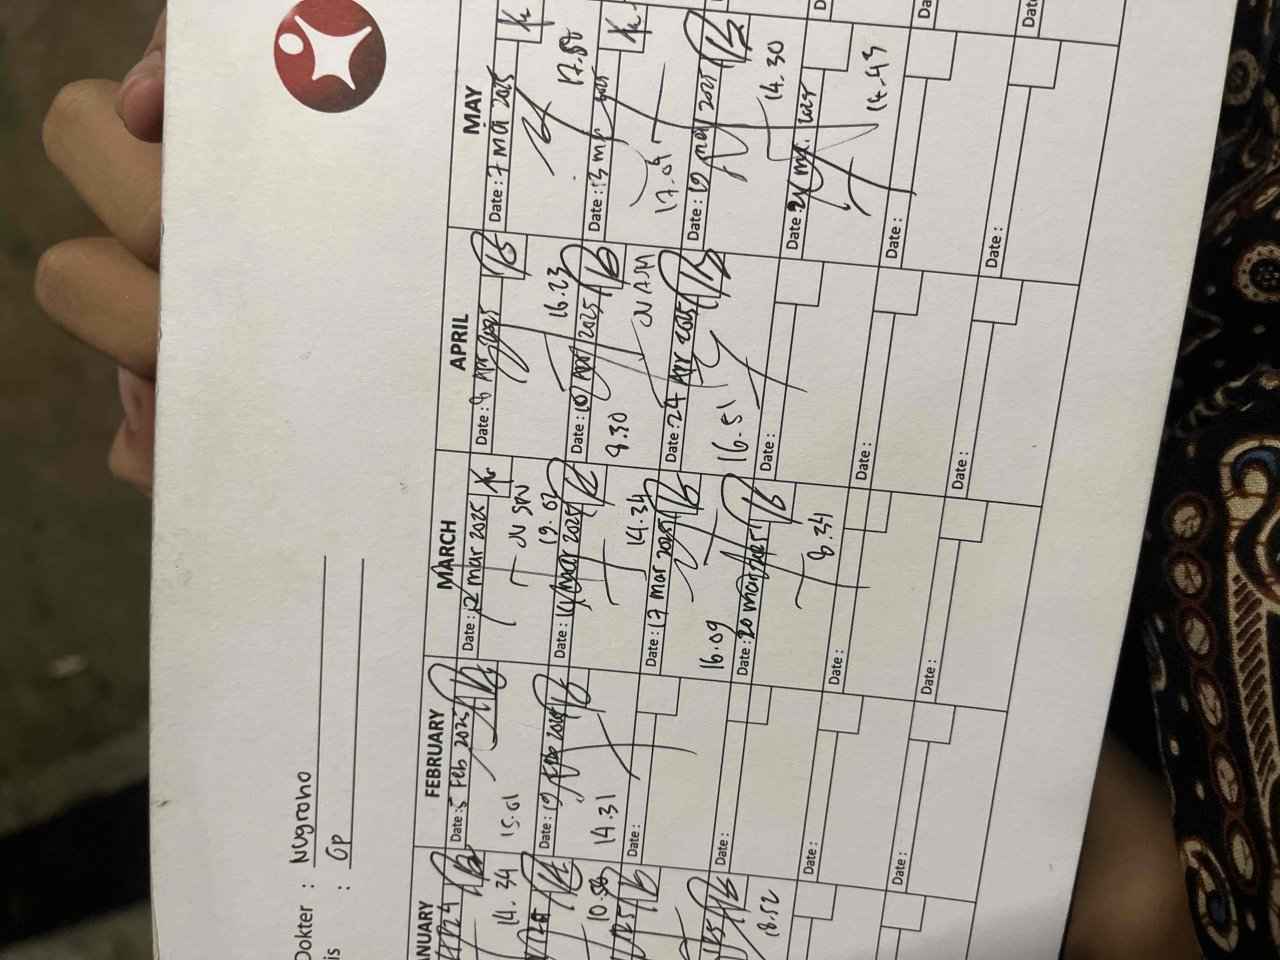 Dokter : Nugroho
is : GP
ANUARY
14.34
10.58
18.52
FEBRUARY
Date: 5 Feb 2025
15.01
Date: 19 Feb 2025
14.31
Date:
Date:
Date:
Date:
MARCH
Date: 12 mar 2025
19.02
Date: 14 mar 2025
14.34
Date: 17 mar 2025
16.09
Date: 20 mar 2025
8.34
Date:
Date:
APRIL
Date: 8 Apr 2025
16.23
Date: 10 Apr 2025
9.30
Date: 24 Apr 2025
16.51
Date:
Date:
Date:
MAY
Date: 7 Mei 2025
17.50
Date: 13 mei 2025
17.09
Date: 19 mei 2025
14.30
Date: 2025
14.43
Date:
Date:
Da
Dat